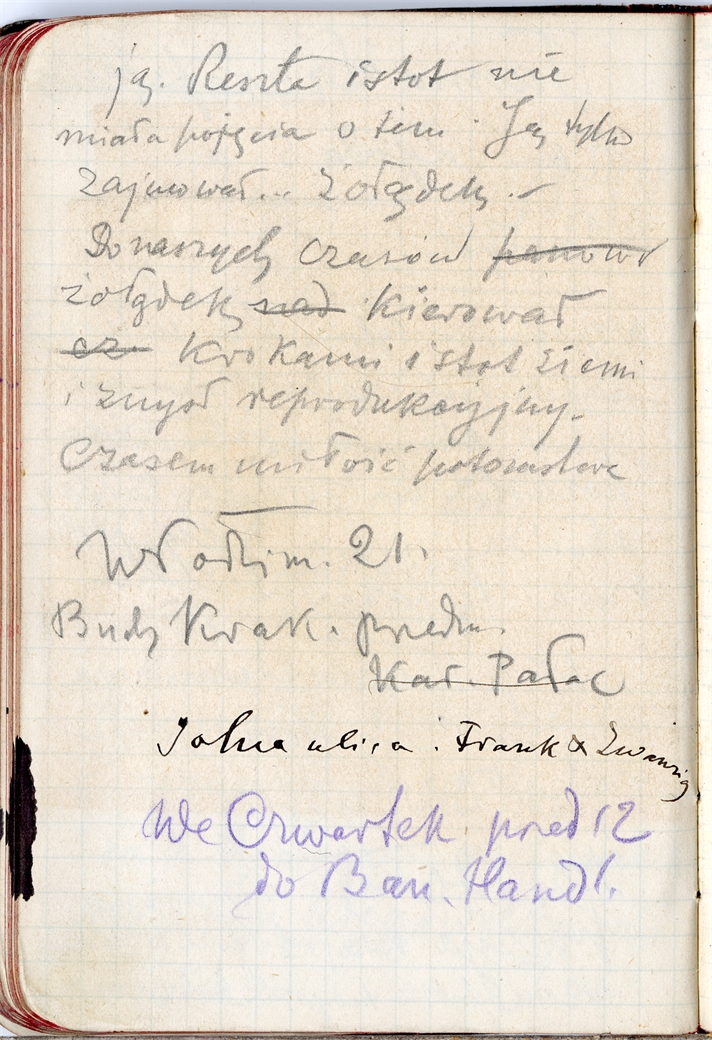 ją. Reszta istot nie
miała pojęcia o tem. Ją tylko
zajmował... żołądek. –
Do naszych czasów panował
żołądek, nad kierował
cz krokami istot ziemi
i zmysł reprodukcyjny.
Czasem miłość potomstwa
Włodzim. 21.
Budy Krak. przedm.
Kar. Pałac
Jasna ulica. Frank &
We Czwartek przed 12
do Ban. Handl.